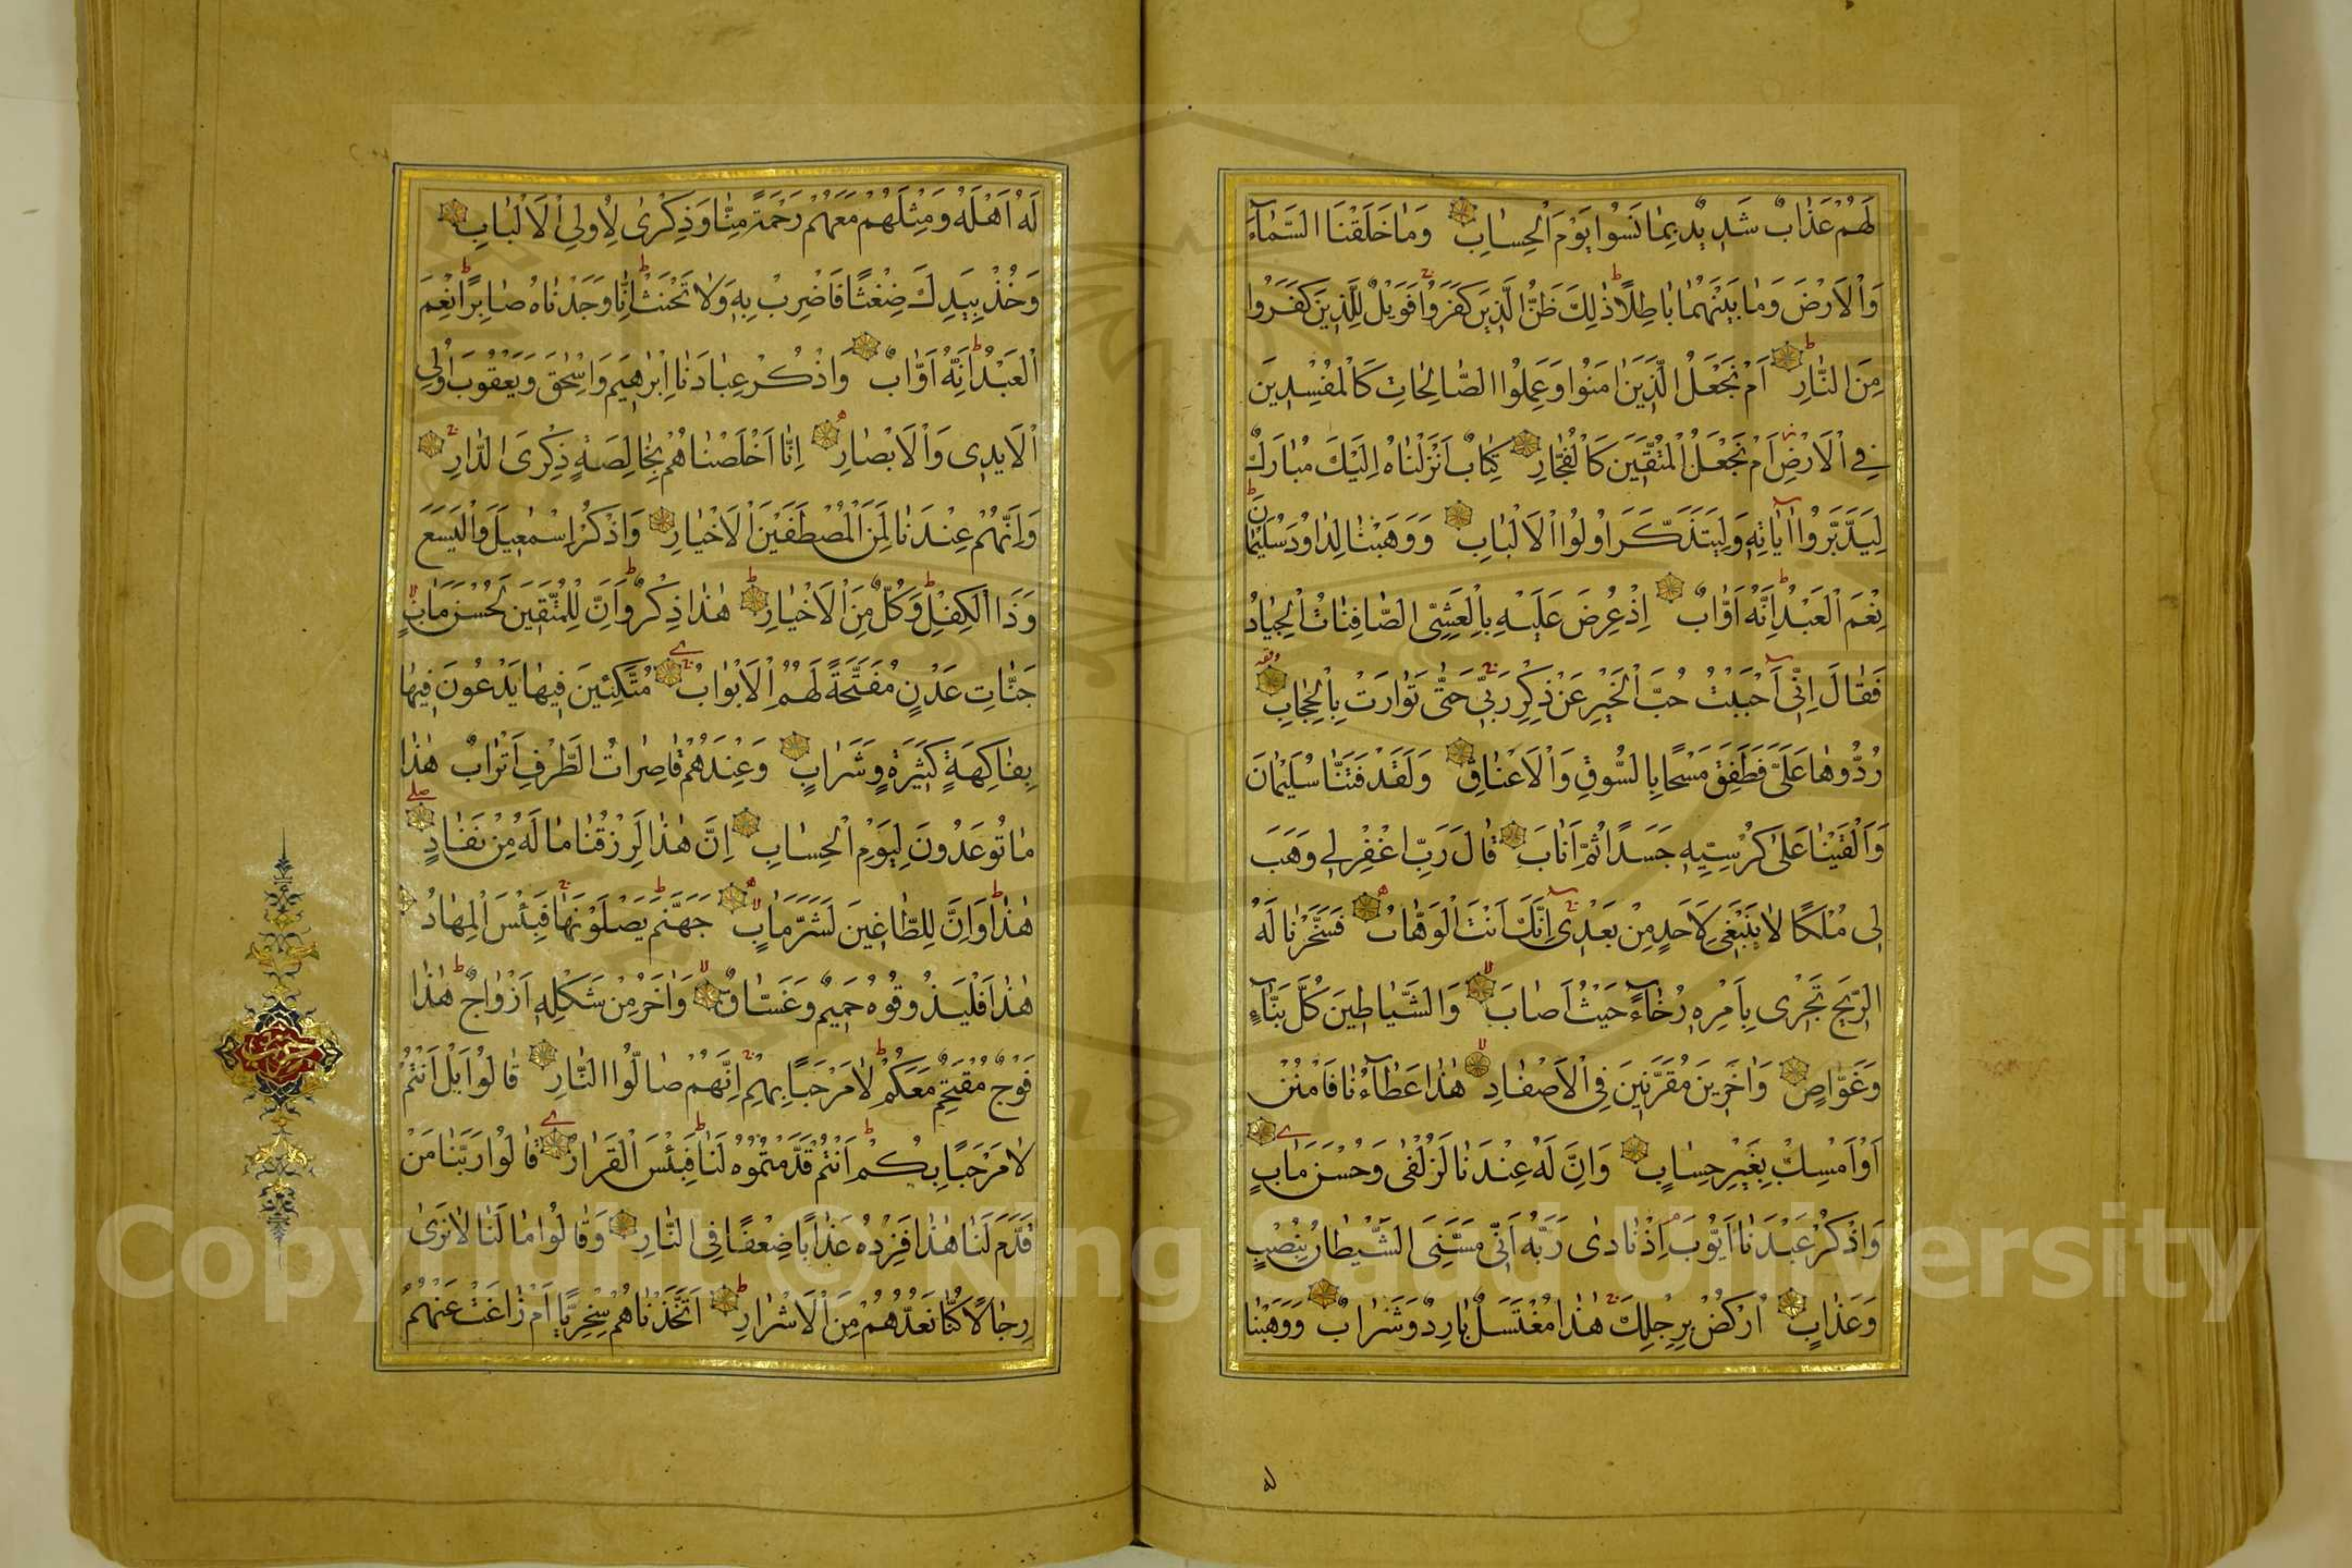 لَهُمْ عَذَابٌ شَدِيدٌ بِمَا نَسُوا يَوْمَ الْحِسَابِ وَمَا خَلَقْنَا السَّمَآءَ
وَالْاَرْضَ وَمَا بَيْنَهُمَا بَاطِلًا ذٰلِكَ ظَنُّ الَّذِينَ كَفَرُوا فَوَيْلٌ لِلَّذِينَ كَفَرُوا
مِنَ النَّارِ اَمْ نَجْعَلُ الَّذِينَ اٰمَنُوا وَعَمِلُوا الصَّالِحَاتِ كَالْمُفْسِدِينَ
فِي الْاَرْضِ اَمْ نَجْعَلُ الْمُتَّقِينَ كَالْفُجَّارِ كِتَابٌ اَنْزَلْنَاهُ اِلَيْكَ مُبَارَكٌ
لِيَدَّبَّرُوا اٰيَاتِهِ وَلِيَتَذَكَّرَ اُولُوا الْاَلْبَابِ وَوَهَبْنَا لِدَاوُدَ سُلَيْمَانَ
نِعْمَ الْعَبْدُ اِنَّهُ اَوَّابٌ اِذْ عُرِضَ عَلَيْهِ بِالْعَشِيِّ الصَّافِنَاتُ الْجِيَادُ
فَقَالَ اِنِّي اَحْبَبْتُ حُبَّ الْخَيْرِ عَنْ ذِكْرِ رَبِّي حَتّٰى تَوَارَتْ بِالْحِجَابِ
رُدُّوهَا عَلَيَّ فَطَفِقَ مَسْحًا بِالسُّوقِ وَالْاَعْنَاقِ وَلَقَدْ فَتَنَّا سُلَيْمَانَ
وَاَلْقَيْنَا عَلٰى كُرْسِيِّهِ جَسَدًا ثُمَّ اَنَابَ قَالَ رَبِّ اغْفِرْلِي وَهَبْ
لِي مُلْكًا لَا يَنْبَغِي لِاَحَدٍ مِنْ بَعْدِي اِنَّكَ اَنْتَ الْوَهَّابُ فَسَخَّرْنَا لَهُ
الرِّيحَ تَجْرِي بِاَمْرِهِ رُخَآءً حَيْثُ اَصَابَ وَالشَّيَاطِينَ كُلَّ بَنَّآءٍ
وَغَوَّاصٍ وَاٰخَرِينَ مُقَرَّنِينَ فِي الْاَصْفَادِ هٰذَا عَطَآؤُنَا فَامْنُنْ
اَوْ اَمْسِكْ بِغَيْرِ حِسَابٍ وَاِنَّ لَهُ عِنْدَنَا لَزُلْفٰى وَحُسْنَ مَاٰبٍ
وَاذْكُرْ عَبْدَنَا اَيُّوبَ اِذْ نَادٰى رَبَّهُ اَنِّي مَسَّنِيَ الشَّيْطَانُ بِنُصْبٍ
وَعَذَابٍ اُرْكُضْ بِرِجْلِكَ هٰذَا مُغْتَسَلٌ بَارِدٌ وَشَرَابٌ وَوَهَبْنَا
لَهُ اَهْلَهُ وَمِثْلَهُمْ مَعَهُمْ رَحْمَةً مِنَّا وَذِكْرٰى لِاُولِي الْاَلْبَابِ
وَخُذْ بِيَدِكَ ضِغْثًا فَاضْرِبْ بِهِ وَلَا تَحْنَثْ اِنَّا وَجَدْنَاهُ صَابِرًا نِعْمَ
الْعَبْدُ اِنَّهُ اَوَّابٌ وَاذْكُرْ عِبَادَنَا اِبْرٰهِيمَ وَاِسْحٰقَ وَيَعْقُوبَ اُولِي
الْاَيْدِي وَالْاَبْصَارِ اِنَّا اَخْلَصْنَاهُمْ بِخَالِصَةٍ ذِكْرَى الدَّارِ
وَاِنَّهُمْ عِنْدَنَا لَمِنَ الْمُصْطَفَيْنَ الْاَخْيَارِ وَاذْكُرْ اِسْمٰعِيلَ وَالْيَسَعَ
وَذَا الْكِفْلِ وَكُلٌّ مِنَ الْاَخْيَارِ هٰذَا ذِكْرٌ وَاِنَّ لِلْمُتَّقِينَ لَحُسْنَ مَاٰبٍ
جَنَّاتِ عَدْنٍ مُفَتَّحَةً لَهُمُ الْاَبْوَابُ مُتَّكِئِينَ فِيهَا يَدْعُونَ فِيهَا
بِفَاكِهَةٍ كَثِيرَةٍ وَشَرَابٍ وَعِنْدَهُمْ قَاصِرَاتُ الطَّرْفِ اَتْرَابٌ هٰذَا
مَا تُوعَدُونَ لِيَوْمِ الْحِسَابِ اِنَّ هٰذَا لَرِزْقُنَا مَا لَهُ مِنْ نَفَادٍ
هٰذَا وَاِنَّ لِلطَّاغِينَ لَشَرَّ مَاٰبٍ جَهَنَّمَ يَصْلَوْنَهَا فَبِئْسَ الْمِهَادُ
هٰذَا فَلْيَذُوقُوهُ حَمِيمٌ وَغَسَّاقٌ وَاٰخَرُ مِنْ شَكْلِهِ اَزْوَاجٌ هٰذَا
فَوْجٌ مُقْتَحِمٌ مَعَكُمْ لَا مَرْحَبًا بِهِمْ اِنَّهُمْ صَالُوا النَّارِ قَالُوا بَلْ اَنْتُمْ
لَا مَرْحَبًا بِكُمْ اَنْتُمْ قَدَّمْتُمُوهُ لَنَا فَبِئْسَ الْقَرَارُ قَالُوا رَبَّنَا مَنْ
قَدَّمَ لَنَا هٰذَا فَزِدْهُ عَذَابًا ضِعْفًا فِي النَّارِ وَقَالُوا مَا لَنَا لَا نَرٰى
رِجَالًا كُنَّا نَعُدُّهُمْ مِنَ الْاَشْرَارِ اَتَّخَذْنَاهُمْ سِخْرِيًّا اَمْ زَاغَتْ عَنْهُمُ
Copyright © King Saud University